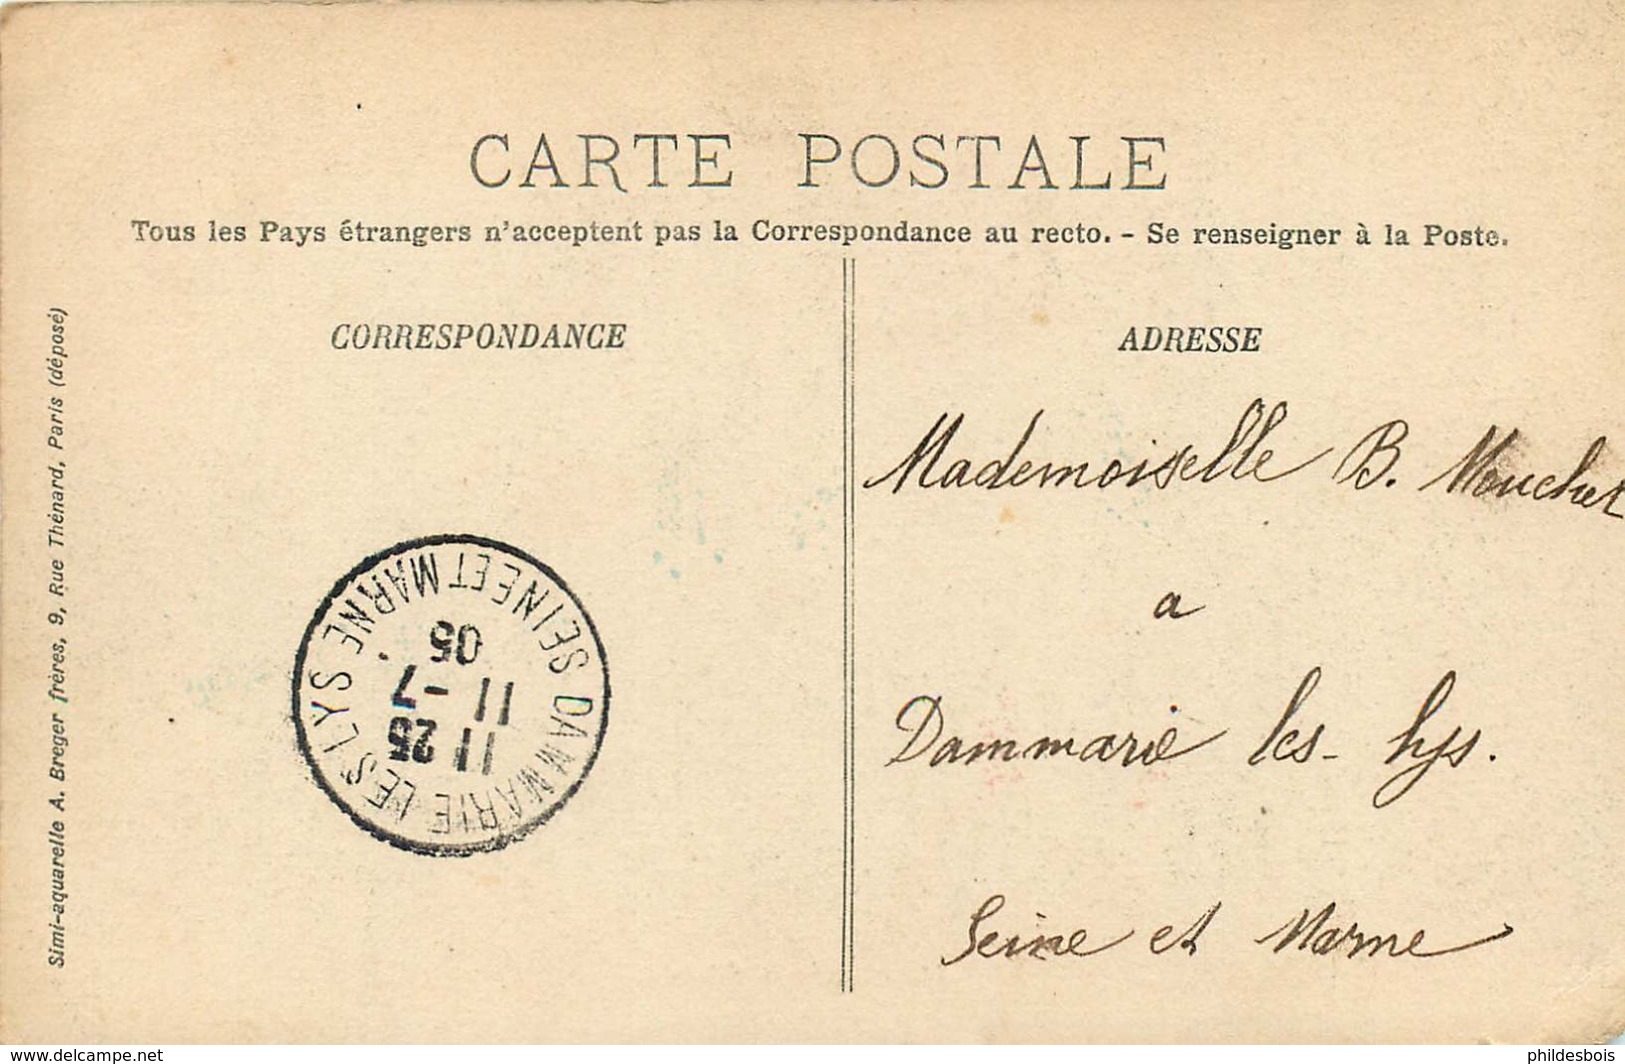 CARTE POSTALE
Tous les Pays étrangers n'acceptent pas la Correspondance au recto. - Se renseigner à la Poste.
CORRESPONDANCE
ADRESSE
Mademoiselle B. Mouchet
a
Dammarie les- lys.
Seine et Marne
DAMMARIE LES LYS
SEINE ET MARNE
11 25
11 -7
05
Simi-aquarelle A. Breger frères, 9, Rue Thénard, Paris (déposé)
www.delcampe.net
phildesbois